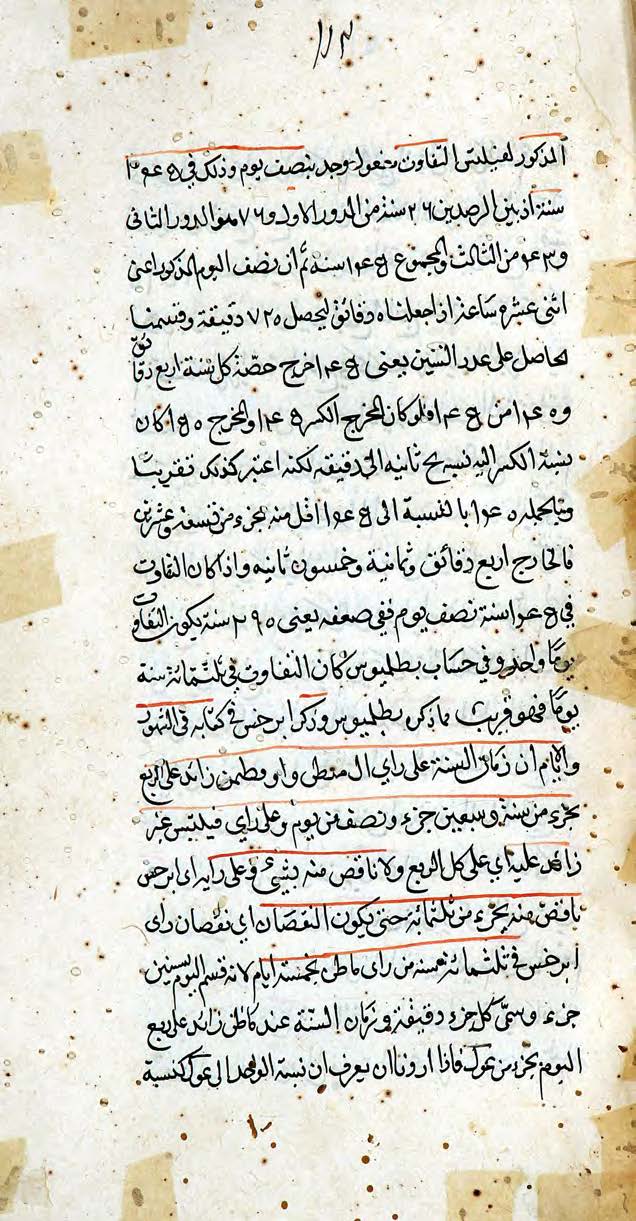 ١١٣
المذكور لفيلبس التفاوت وجد بنصف يوم وذلك في
سنة اذ بين الرصدين ٢٦ سنة من الدور الاول و ٧٦ الدور الثاني
و ٤٣ من الثالث والمجموع ١٤٥ سنة ثم ان نصف اليوم المذكور اعنى
اثنى عشرة ساعة اذا جعلناه دقائق ليحصل ٧٢٥ دقيقة وقسمنا
الحاصل على عدد السنين يعنى ١٤٥ خرج حصة كل سنة اربع دقائق
و ١٤٥ من ١٤٥ ولو كان المخرج الكسر ١٤٥ او المخرج ١٤٥ كان
نسبة الكسر اليه نسبة ثانيه الى دقيقه لكنه اعتبر كذلك تقريبًا
وبالجمله بالنسبة الى ١٤٥ اقل منه بجزء من تسعة وعشرين
فالخارج اربع دقائق وثمانية وخمسون ثانيه واذا كان التفاوت
في ١٤٥ سنة نصف يوم ففي ضعفه يعنى ٢٩٠ سنة يكون التفاوت
يومًا واحد وفي حساب بطلميوس كان التفاوت في ثلثمائة سنة
يومًا فهو قريب مما ذكره بطلميوس وذكر ابرخس في كتابه في الشهور
والايام ان زمان السنة على راي ال منطى واوقطيمن زائد على الربع
بجزء من ستة وسبعين جزء ونصف من يوم وعلى راي فيلبس غير
زائد عليه اي على كل الربع ولا ناقص منه بشئ وعلى رايه اي ابرخس
ناقص منه بجزء من ثلثمائة حتى يكون النقصان اي نقصان راى
ابرخس في ثلثمائة سنة من راى ماطن بخمسة ايام لانه قسم اليوم بستين
جزء وسمى كل جزء دقيقة وزمان السنة عند ماطن زائد على ربع
اليوم بجزء من عوك فاذا اردنا ان يعرف ان نسبة الواحد الى عوك كنسبة